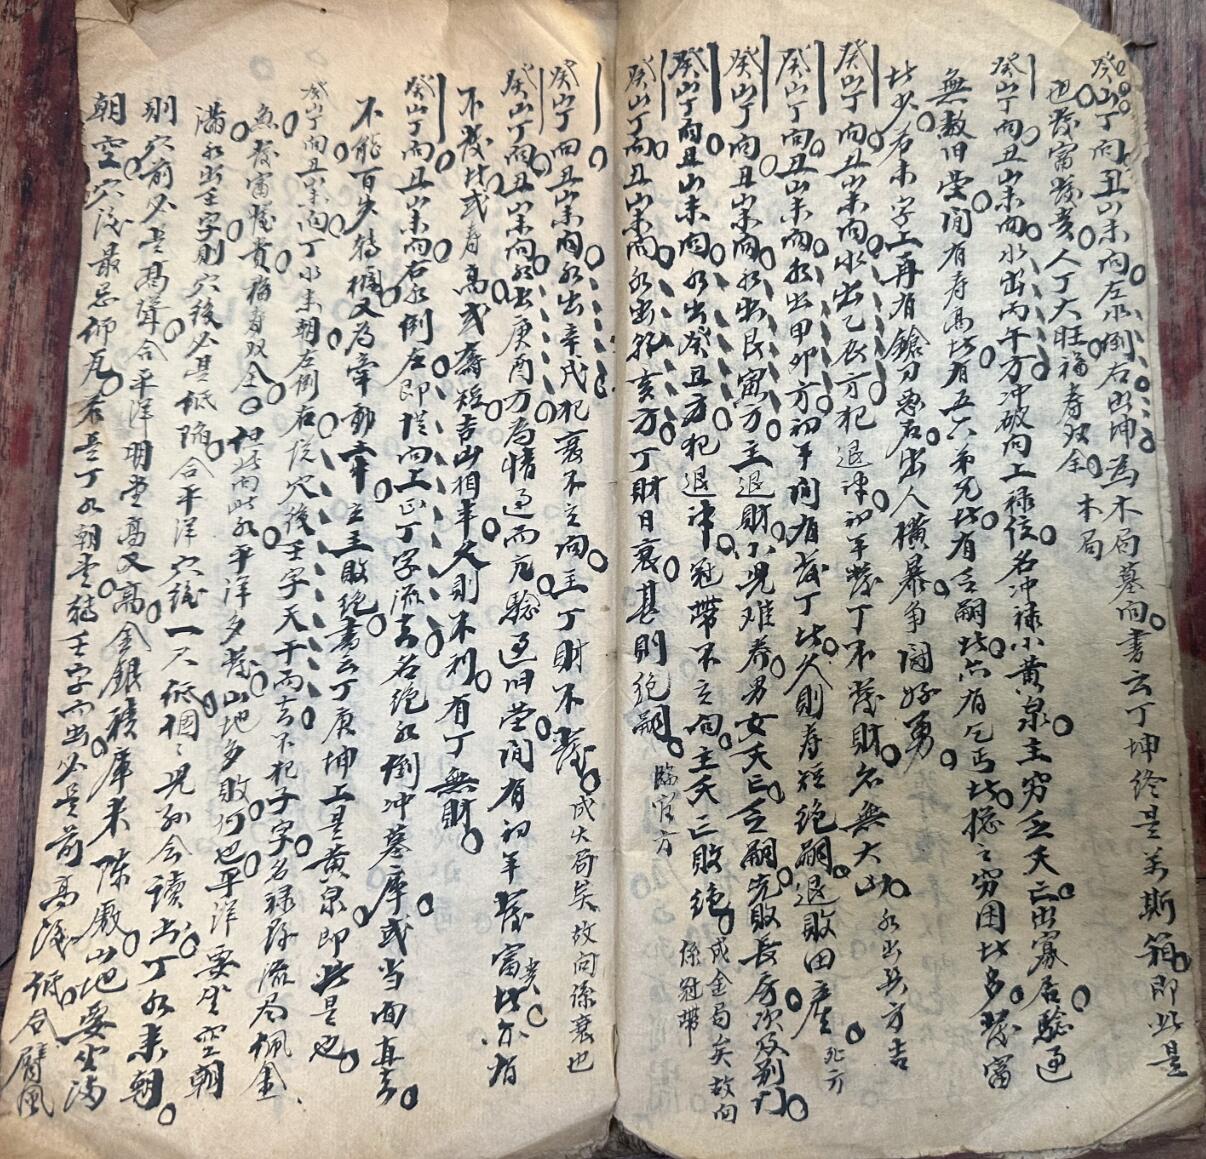 癸山丁向丑山未向左水倒右出坤為木局墓向書云丁坤終是萬斯箱即此是
也發富發貴人丁大旺福壽双全 木局
癸山丁向丑山未向水出丙午方冲破向上禄位名冲禄小黄泉主穷乏夭亡出寡居驗過
無数旧塋間有寿高此有五六弟兄此有乏嗣此亦有乞丐此摠之穷困此多發富
此少若未字上再有鎗刀惡石出人横暴争闘好勇
癸山丁向丑山未向水出乙辰方犯退神初年發丁不發財名無大凶 水出巽方吉
癸山丁向丑山未向水出甲卯方初年間有發丁此久則寿短絶嗣退敗田産 死方
癸山丁向丑山未向水出艮寅方主退財小児难养男女夭亡乏嗣先敗長房次及别門
癸山丁向丑山未向水出癸丑方犯退神冠帶不立向主夭亡敗絶 成金局矣故向係冠帶
癸山丁向丑山未向水出乾亥方丁財日衰甚則絶嗣 臨官方
癸山丁向丑山未向水出辛戌犯衰不立向主丁財不發 成火局矣故向係衰也
癸山丁向丑山未向水出庚酉方為情過而亢驗過旧塋間有初年發富貴此亦有
不發此或寿高或寿短吉凶相半久則不利有丁無財
癸山丁向丑山未向右水倒左即從向上正丁字流去名絶水倒冲墓庫或当面直去
不能百步轉欄又為牽動土牛立主敗絶書云丁庚坤上是黄泉即此是也
癸山丁向丑山未向丁水来朝左倒右從穴後壬字天干而去不犯子字名禄存流尽佩金
魚發富發貴福寿双全但此向此水平洋多發山地多敗何也平洋要坐空朝
滿水出壬字則穴後必是低陷合平洋穴後一尺低個個児孫会讀书丁水来朝
則穴前必是髙聳合平洋明堂高又高金銀積庫米陳廒山地要坐满
朝空穴後最忌仰瓦若是丁水朝堂轉壬字而出必是前高後低合臂風